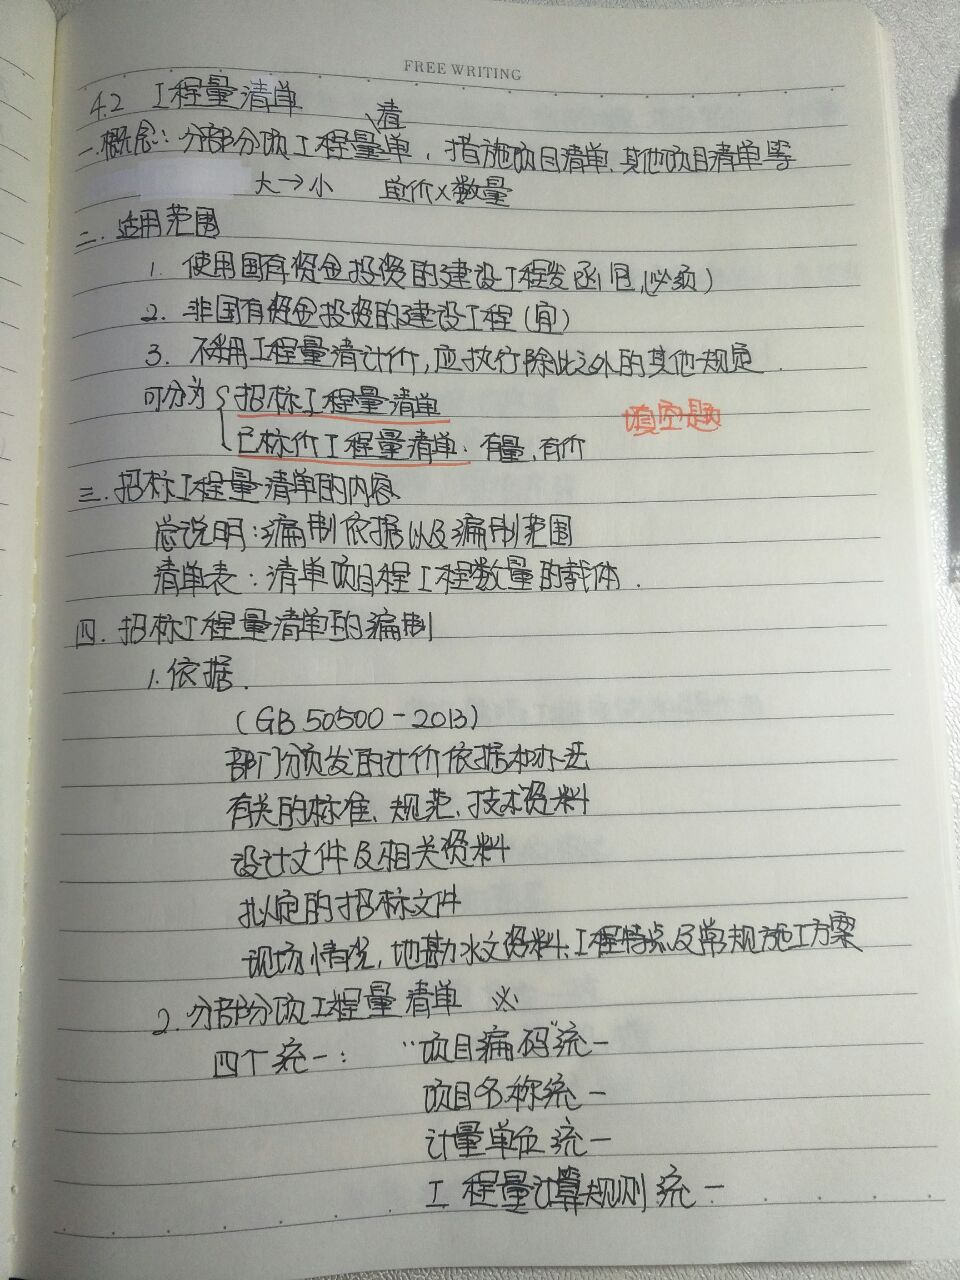 FREE WRITING
4.2 工程量清单
一.概念：分部分项工程量清单，措施项目清单、其他项目清单等
大→小 单价×数量
二.适用范围
1. 使用国有资金投资的建设工程发函(必须)
2. 非国有资金投资的建设工程(宜)
3. 不采用工程量清计价，应执行除此之外的其他规定.
可分为{招标工程量清单 填空题
已标价工程量清单. 有量，有价
三.招标工程量清单的内容
总说明：编制依据以及编制范围
清单表：清单项目程工程数量的载体.
四.招标工程量清单的编制
1.依据.
(GB 50500-2013)
部门颁发的计价依据和办法
有关的标准、规范、技术资料
设计文件及相关资料
拟定的招标文件
现场情况，地勘水文资料、工程特点及常规施工方案
2.分部分项工程量清单 ※
四个统一： "项目编码"统一
项目名称统一
计量单位统一
工程量计算规则统一